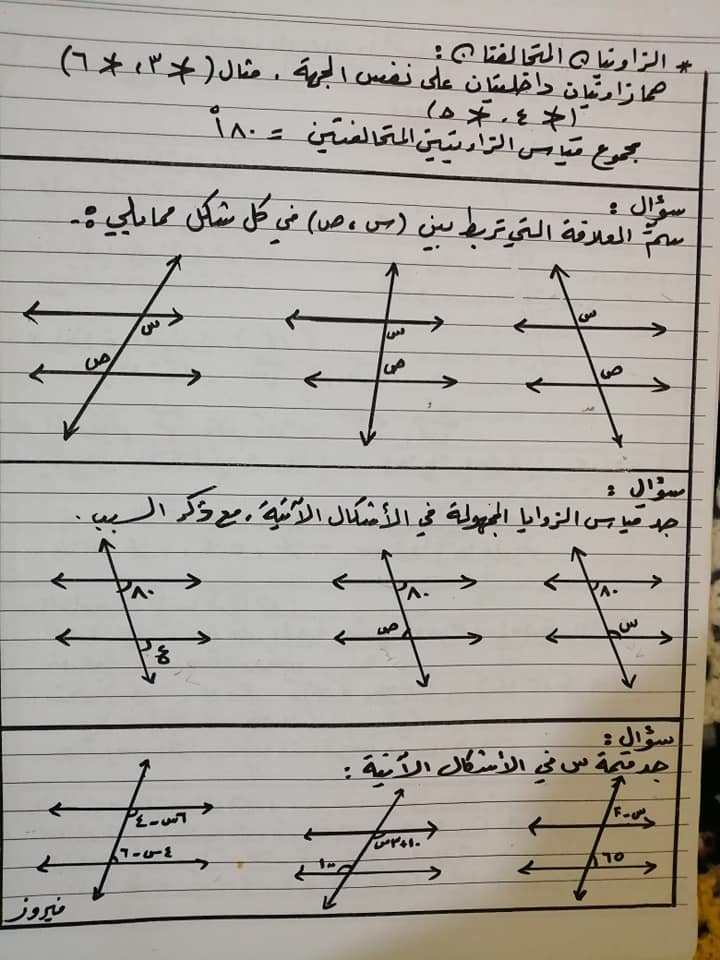 * الزاويتان المتحالفتان :
هما زاويتان داخليتان على نفس الجهة . مثال ( ∢ ٣ ، ∢ ٦ )
( ∢ ٤ ، ∢ ٥ )
مجموع قياس الزاويتين المتحالفتين = ١٨٠°
سؤال :
سمِّ العلاقة التي تربط بين ( س ، ص ) في كل شكل مما يلي :-
س
ص
س
ص
س
ص
سؤال :
جد قياس الزوايا المجهولة في الأشكال الآتية ، مع ذكر السبب .
٨٠
س
٨٠
ص
٨٠
ع
سؤال :
جد قيمة س في الأشكال الآتية :
س - ٢٠
٦٥
٣س + ١٠
١٠٠
٦س - ٤
٤س - ٦
فيروز